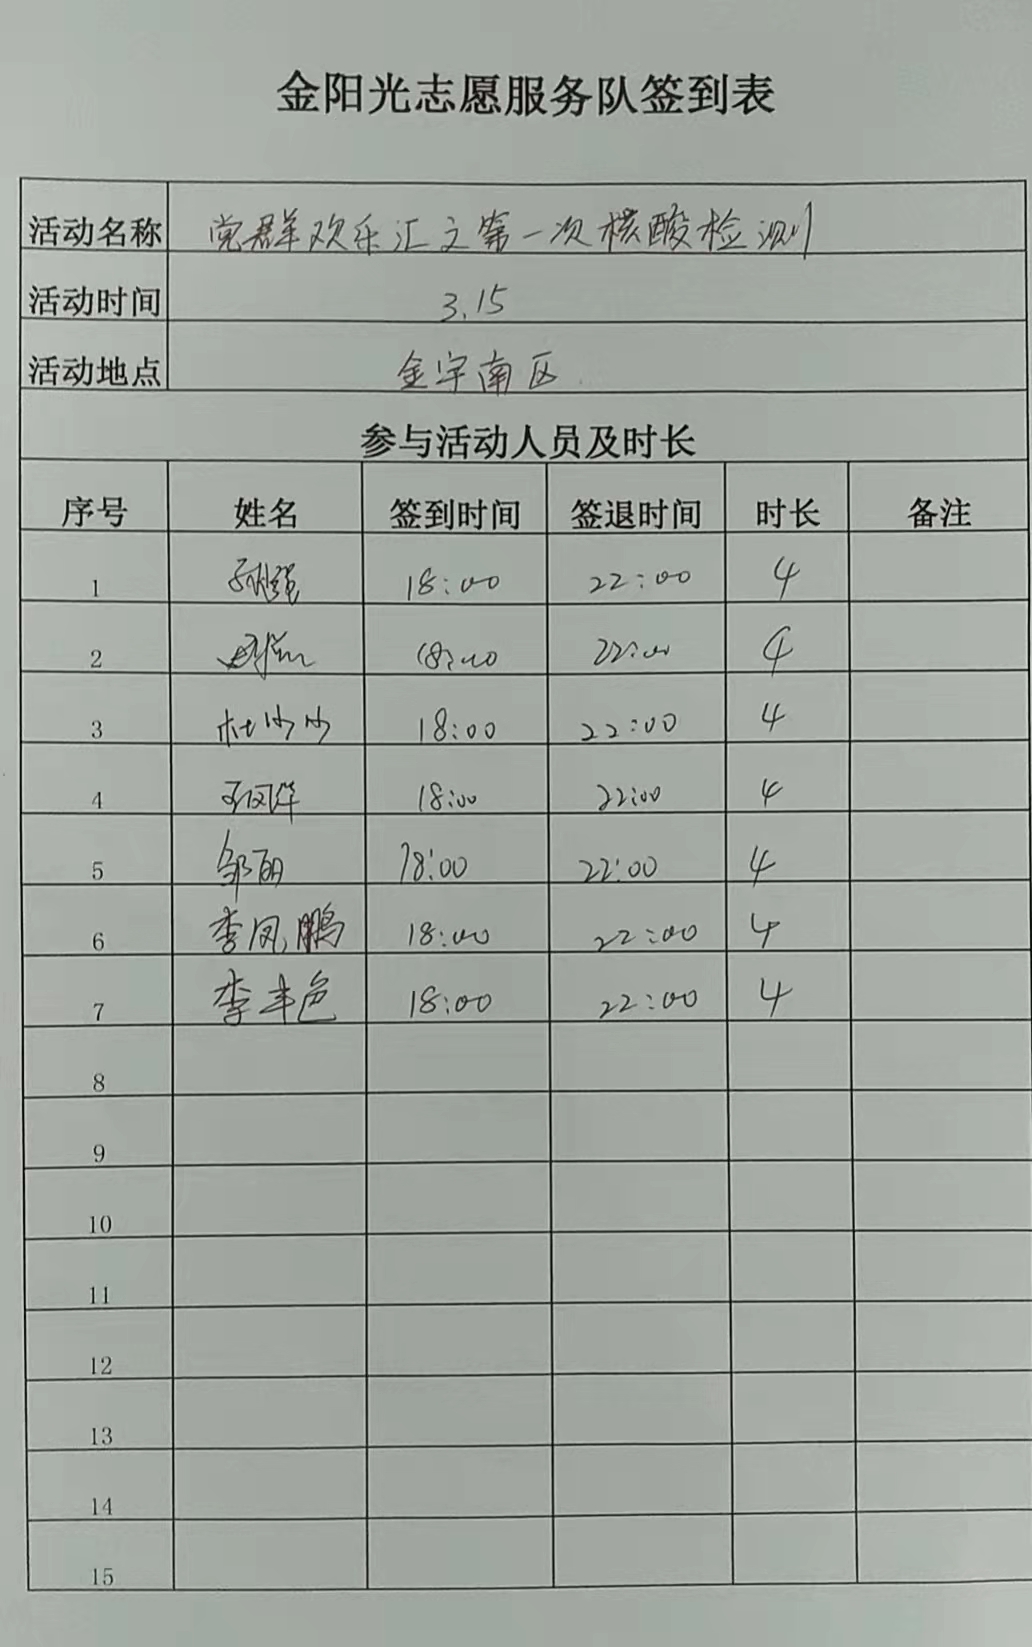 金阳光志愿服务队签到表
活动名称 党群欢乐汇之第一次核酸检测
活动时间 3.15
活动地点 金宇南区
参与活动人员及时长
序号 姓名 签到时间 签退时间 时长 备注
1 18:00 22:00 4
2 18:00 22:00 4
3 杜沙沙 18:00 22:00 4
4 18:00 22:00 4
5 邹丽 18:00 22:00 4
6 李凤鹏 18:00 22:00 4
7 李丰色 18:00 22:00 4
8
9
10
11
12
13
14
15